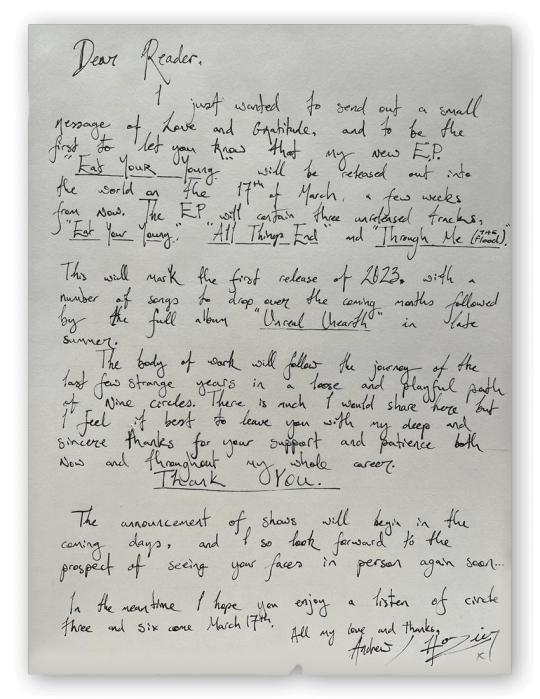 Dear Reader,
I just wanted to send out a small
message of Love and Gratitude, and to be the
first to let you know that my new E.P.
"Eat Your Young" will be released out into
the world on the 17th of March, a few weeks
from now. The E.P. will contain three unreleased tracks,
"Eat Your Young," "All Things End" and "Through Me (THE Flood)."
This will mark the first release of 2023, with a
number of songs to drop over the coming months followed
by the full album "Unreal Unearth" in late
summer.
The body of work will follow the journey of the
last few strange years in a loose and playful path
of Nine circles. There is much I would share here but
I feel it best to leave you with my deep and
sincere thanks for your support and patience both
Now and throughout my whole career.
Thank You.
The announcement of shows will begin in the
coming days, and I so look forward to the
prospect of seeing your faces in person again soon...
In the meantime I hope you enjoy a listen of circle
three and six come March 17th.
All my love and thanks,
Andrew / Hozier
x